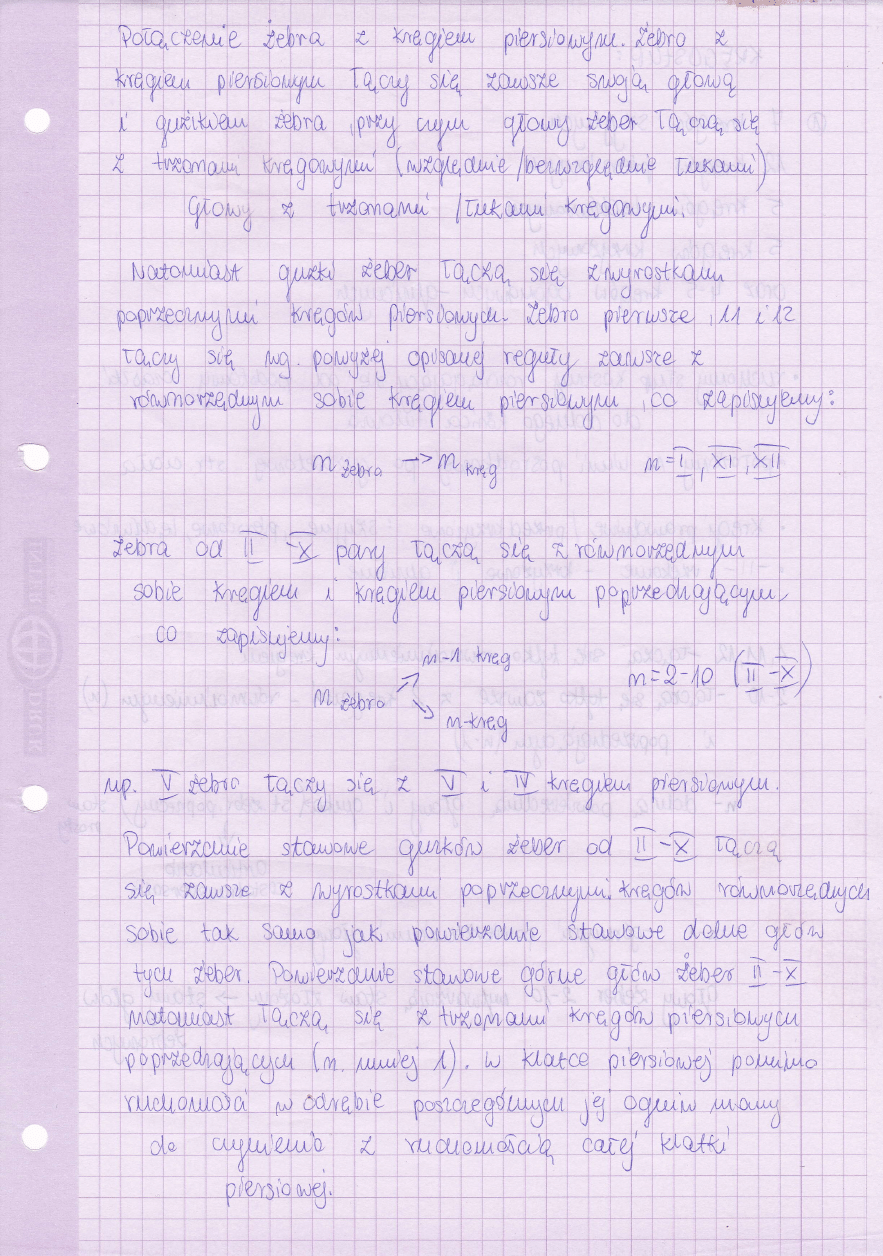 Połączenie żebra z kręgiem piersiowym. Żebro z
kręgiem piersiowym łączy się zawsze swoją głową
i guzikiem żebra, przy czym głowy żeber łączą się
z trzonami kręgowymi (względnie/bezwzględnie łukami)
Głowy z trzonami / łukami kręgowymi.
Natomiast guzki żeber łączą się z wyrostkami
poprzecznymi kręgów piersiowych. Żebro pierwsze, 11 i 12
łączy się wg. powyżej opisanej reguły zawsze z
równorzędnym sobie kręgiem piersiowym, co zapisujemy:
n żebra → n kręg n = I, XI, XII
Żebra od II - X pary łączą się z równorzędnym
sobie kręgiem i kręgiem piersiowym poprzedzającym,
co zapisujemy:
n-1 kręg
n żebro n=2-10 (II-X)
n-kręg
np. V żebro łączy się z V i IV kręgiem piersiowym.
Powierzchnie stawowe guzków żeber od II-X łączą
się zawsze z wyrostkami poprzecznymi kręgów równorzędnych
sobie tak samo jak powierzchnie stawowe dolne głów
tych żeber. Powierzchnie stawowe górne głów żeber II-X
natomiast łączą się z trzonami kręgów piersiowych
poprzedzających (n. mniej 1). W klatce piersiowej pomimo
ruchomości w odrębie poszczególnych jej ogniw mamy
do czynienia z ruchomością całej klatki
piersiowej.